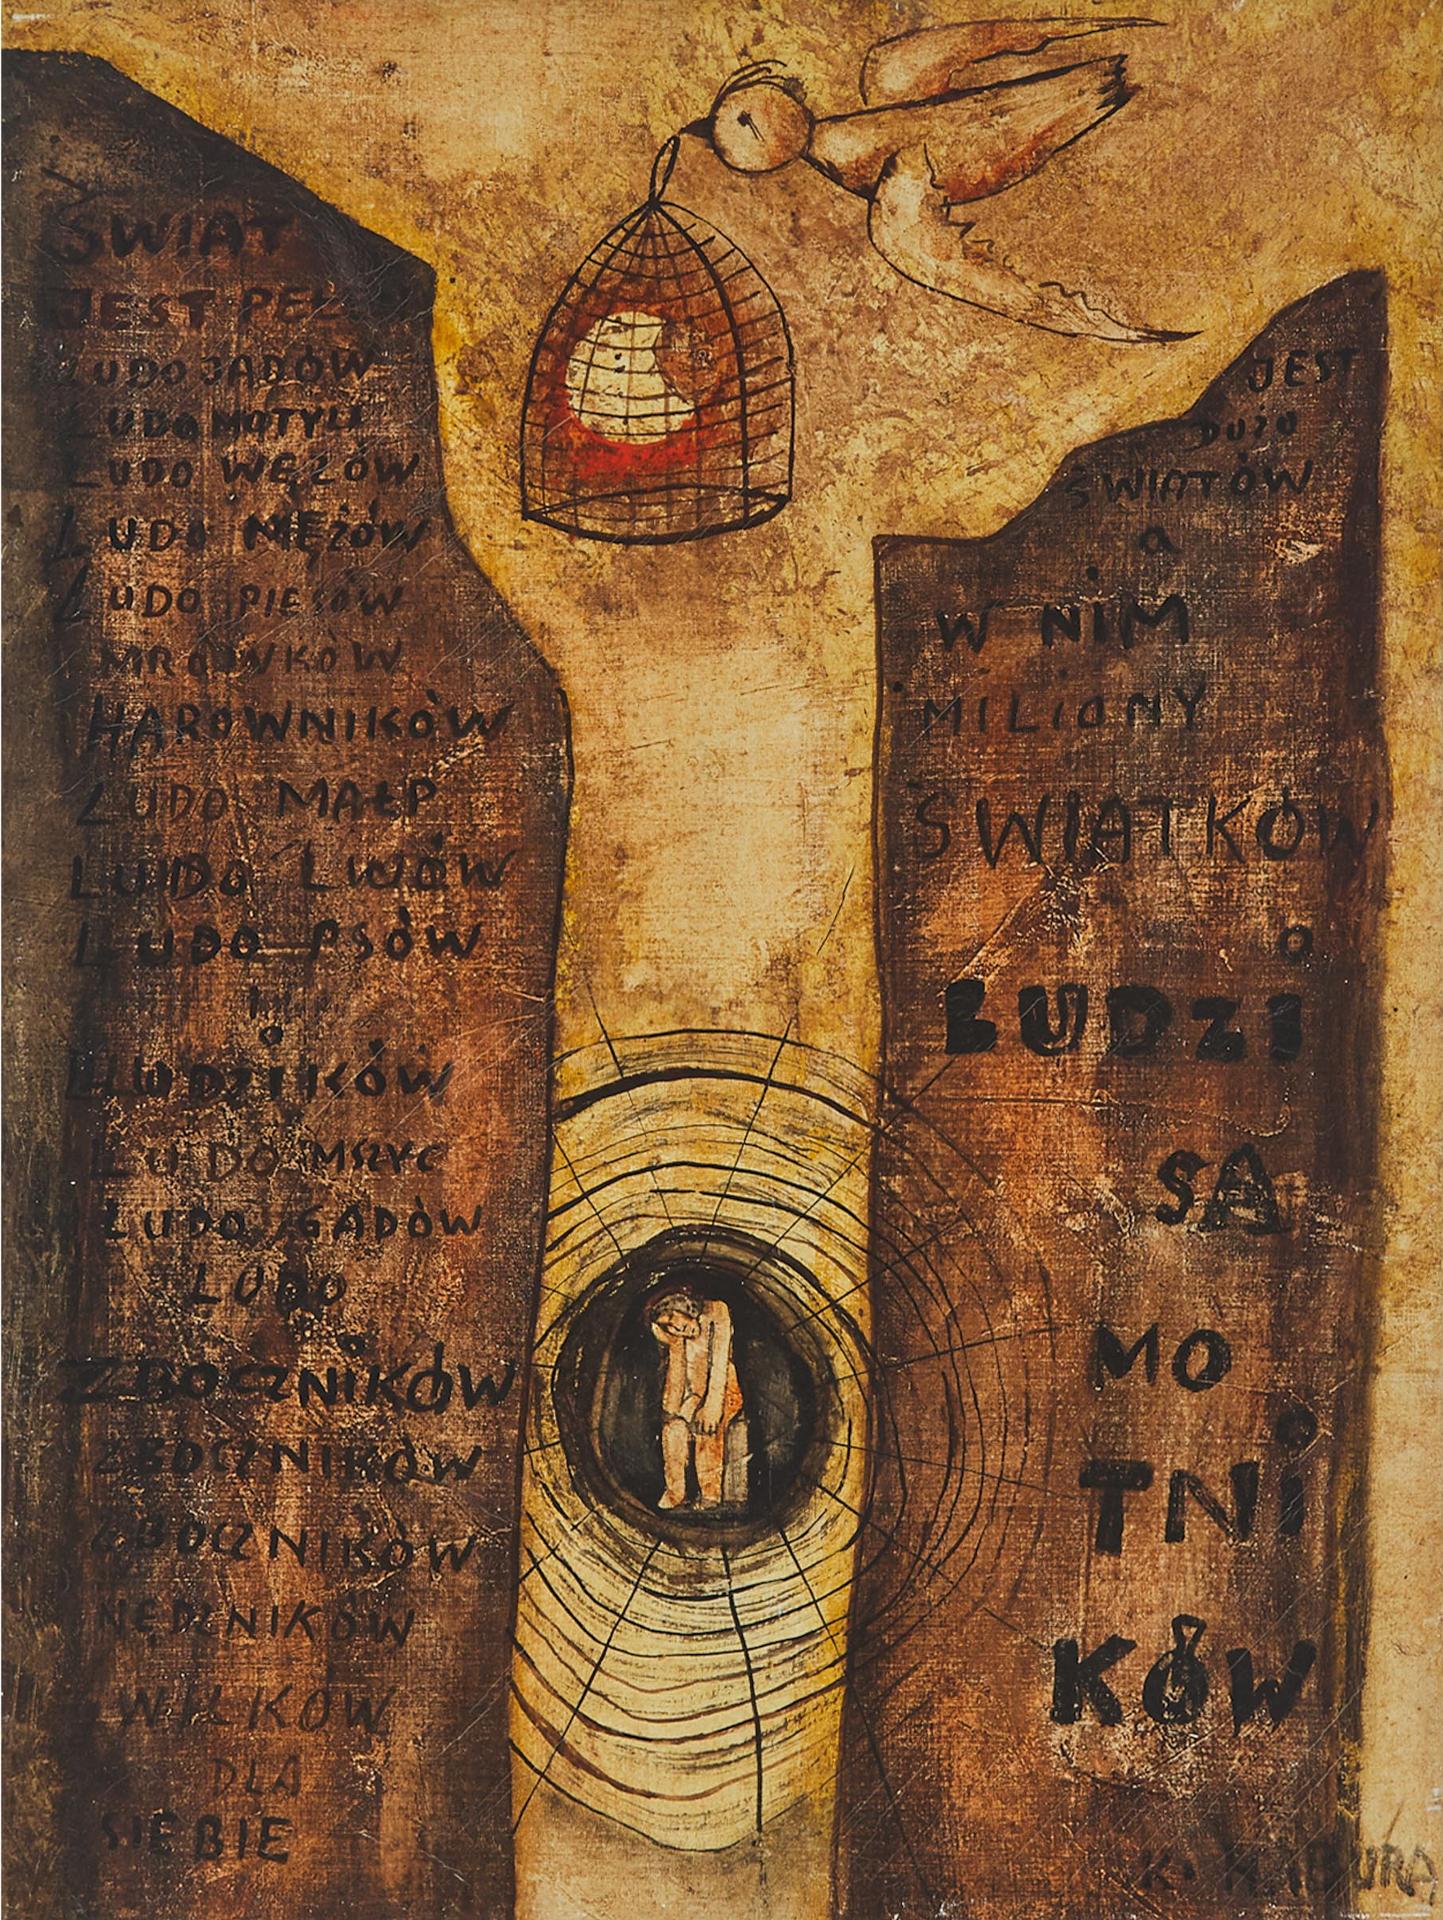 ŚWIAT
JEST PEŁ
LUDOJADÓW
LUDO MOTYLI
LUDO WĘŻÓW
LUDO MĘŻÓW
LUDO PIESÓW
MRÓWKÓW
HAROWNIKÓW
LUDO MAŁP
LUDO LWÓW
LUDO PSÓW
i
LUDZIKÓW
LUDO MSZYC
LUDO GADÓW
LUDO
ZBOCZNiKÓW
ZBOCZNIKÓW
ZBOCZNIKÓW
NĘDZNIKÓW
WILKÓW
DLA
SIEBIE
JEST
DUŻO
ŚWIATÓW
a
W NiM
MiLiONY
ŚWIATKÓW
LUDZi
SA
MO
TNi
KÓW
K. HABURA